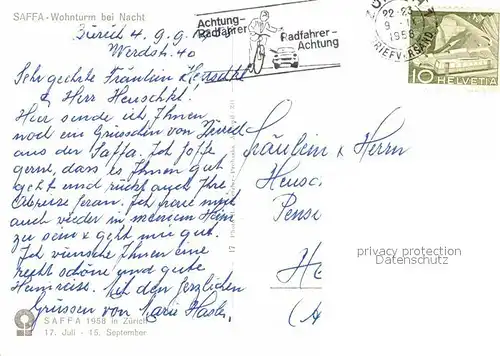 SAFFA-Wohnturm bei Nacht
Achtung-
Radfahrer
Radfahrer-
Achtung
22-23
1958
BRIEFVERSAND
10 HELVETIA
Zürich 4. 9. 9.
Werdstr. 40
Sehr geehrte Fräulein Heuschkel
& Herr Heuschkl.
Hier sende ich Ihnen
noch ein Grüsschen von Zürich
aus der Saffa. Ich hoffe
gerne, dass es Ihnen gut
geht und rückt auch Ihre
Abreise heran. Ich freue mich
auch wieder in meinem Heim
zu sein & geht mir gut.
Ich wünsche Ihnen eine
recht schöne und gute
Heimreise. Mit den herzlichen
Grüssen von Marie Hasler
Fräulein & Herrn
Heusc
Pensi
He
privacy protection
Datenschutz
SAFFA 1958 in Zürich
17. Juli - 15. September